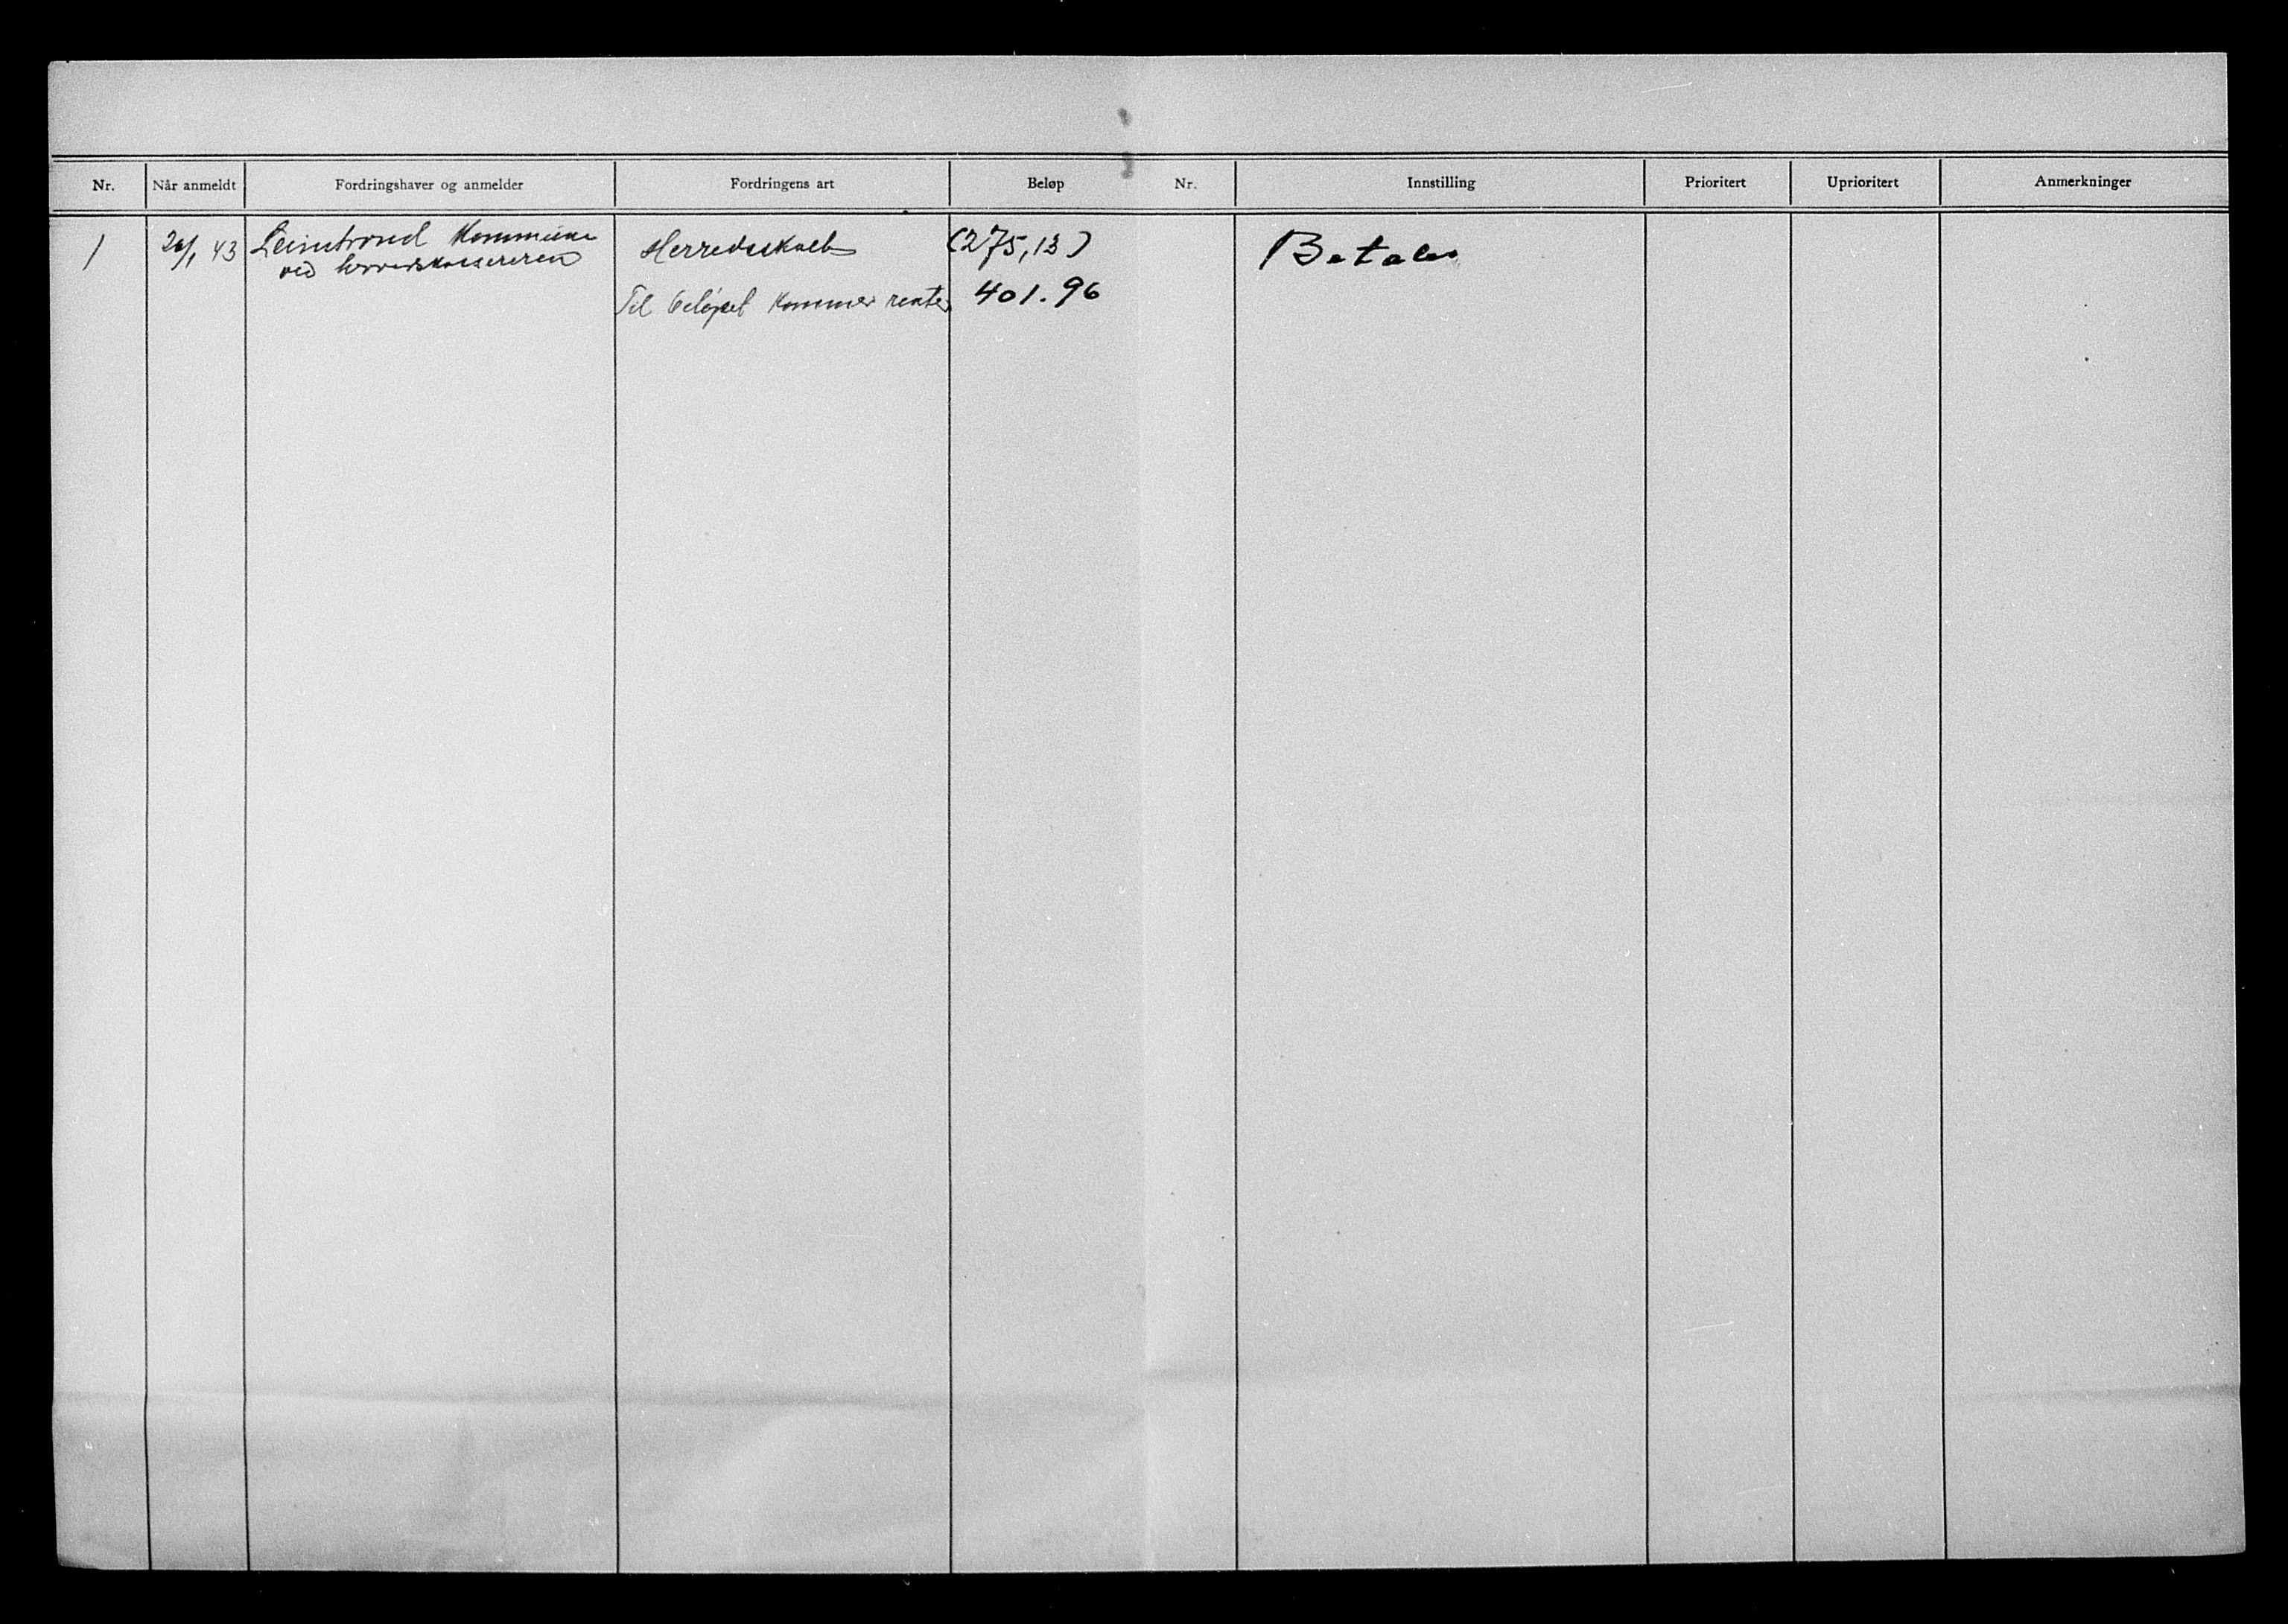 Nr. Når anmeldt Fordringshaver og anmelder Fordringens art Beløp Nr. Innstilling Prioritert Uprioritert Anmerkninger
1 26/1 43 Leinstrand Kommune Herredsskatt (275,13) Betales
ved herredskassereren
Til beløpet kommer renter 401.96